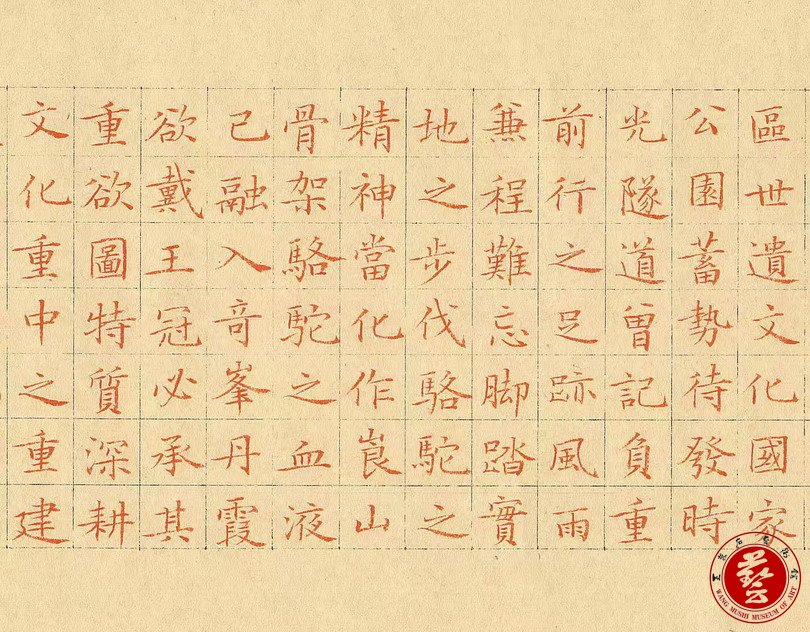 區世遺文化國家
公園蓄勢待發時
光隧道曾記負重
前行之足跡風雨
兼程難忘脚踏實
地之步伐駱駝之
精神當化作崀山
骨架駱駝之血液
已融入奇峯丹霞
欲戴王冠必承其
重欲圖特質深耕
文化重中之重建
藝
WANG MUSHI MUSEUM OF ART